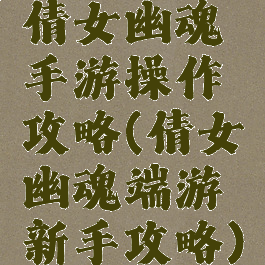 倩女幽魂
手游操作
攻略(倩女
幽魂端游
新手攻略)